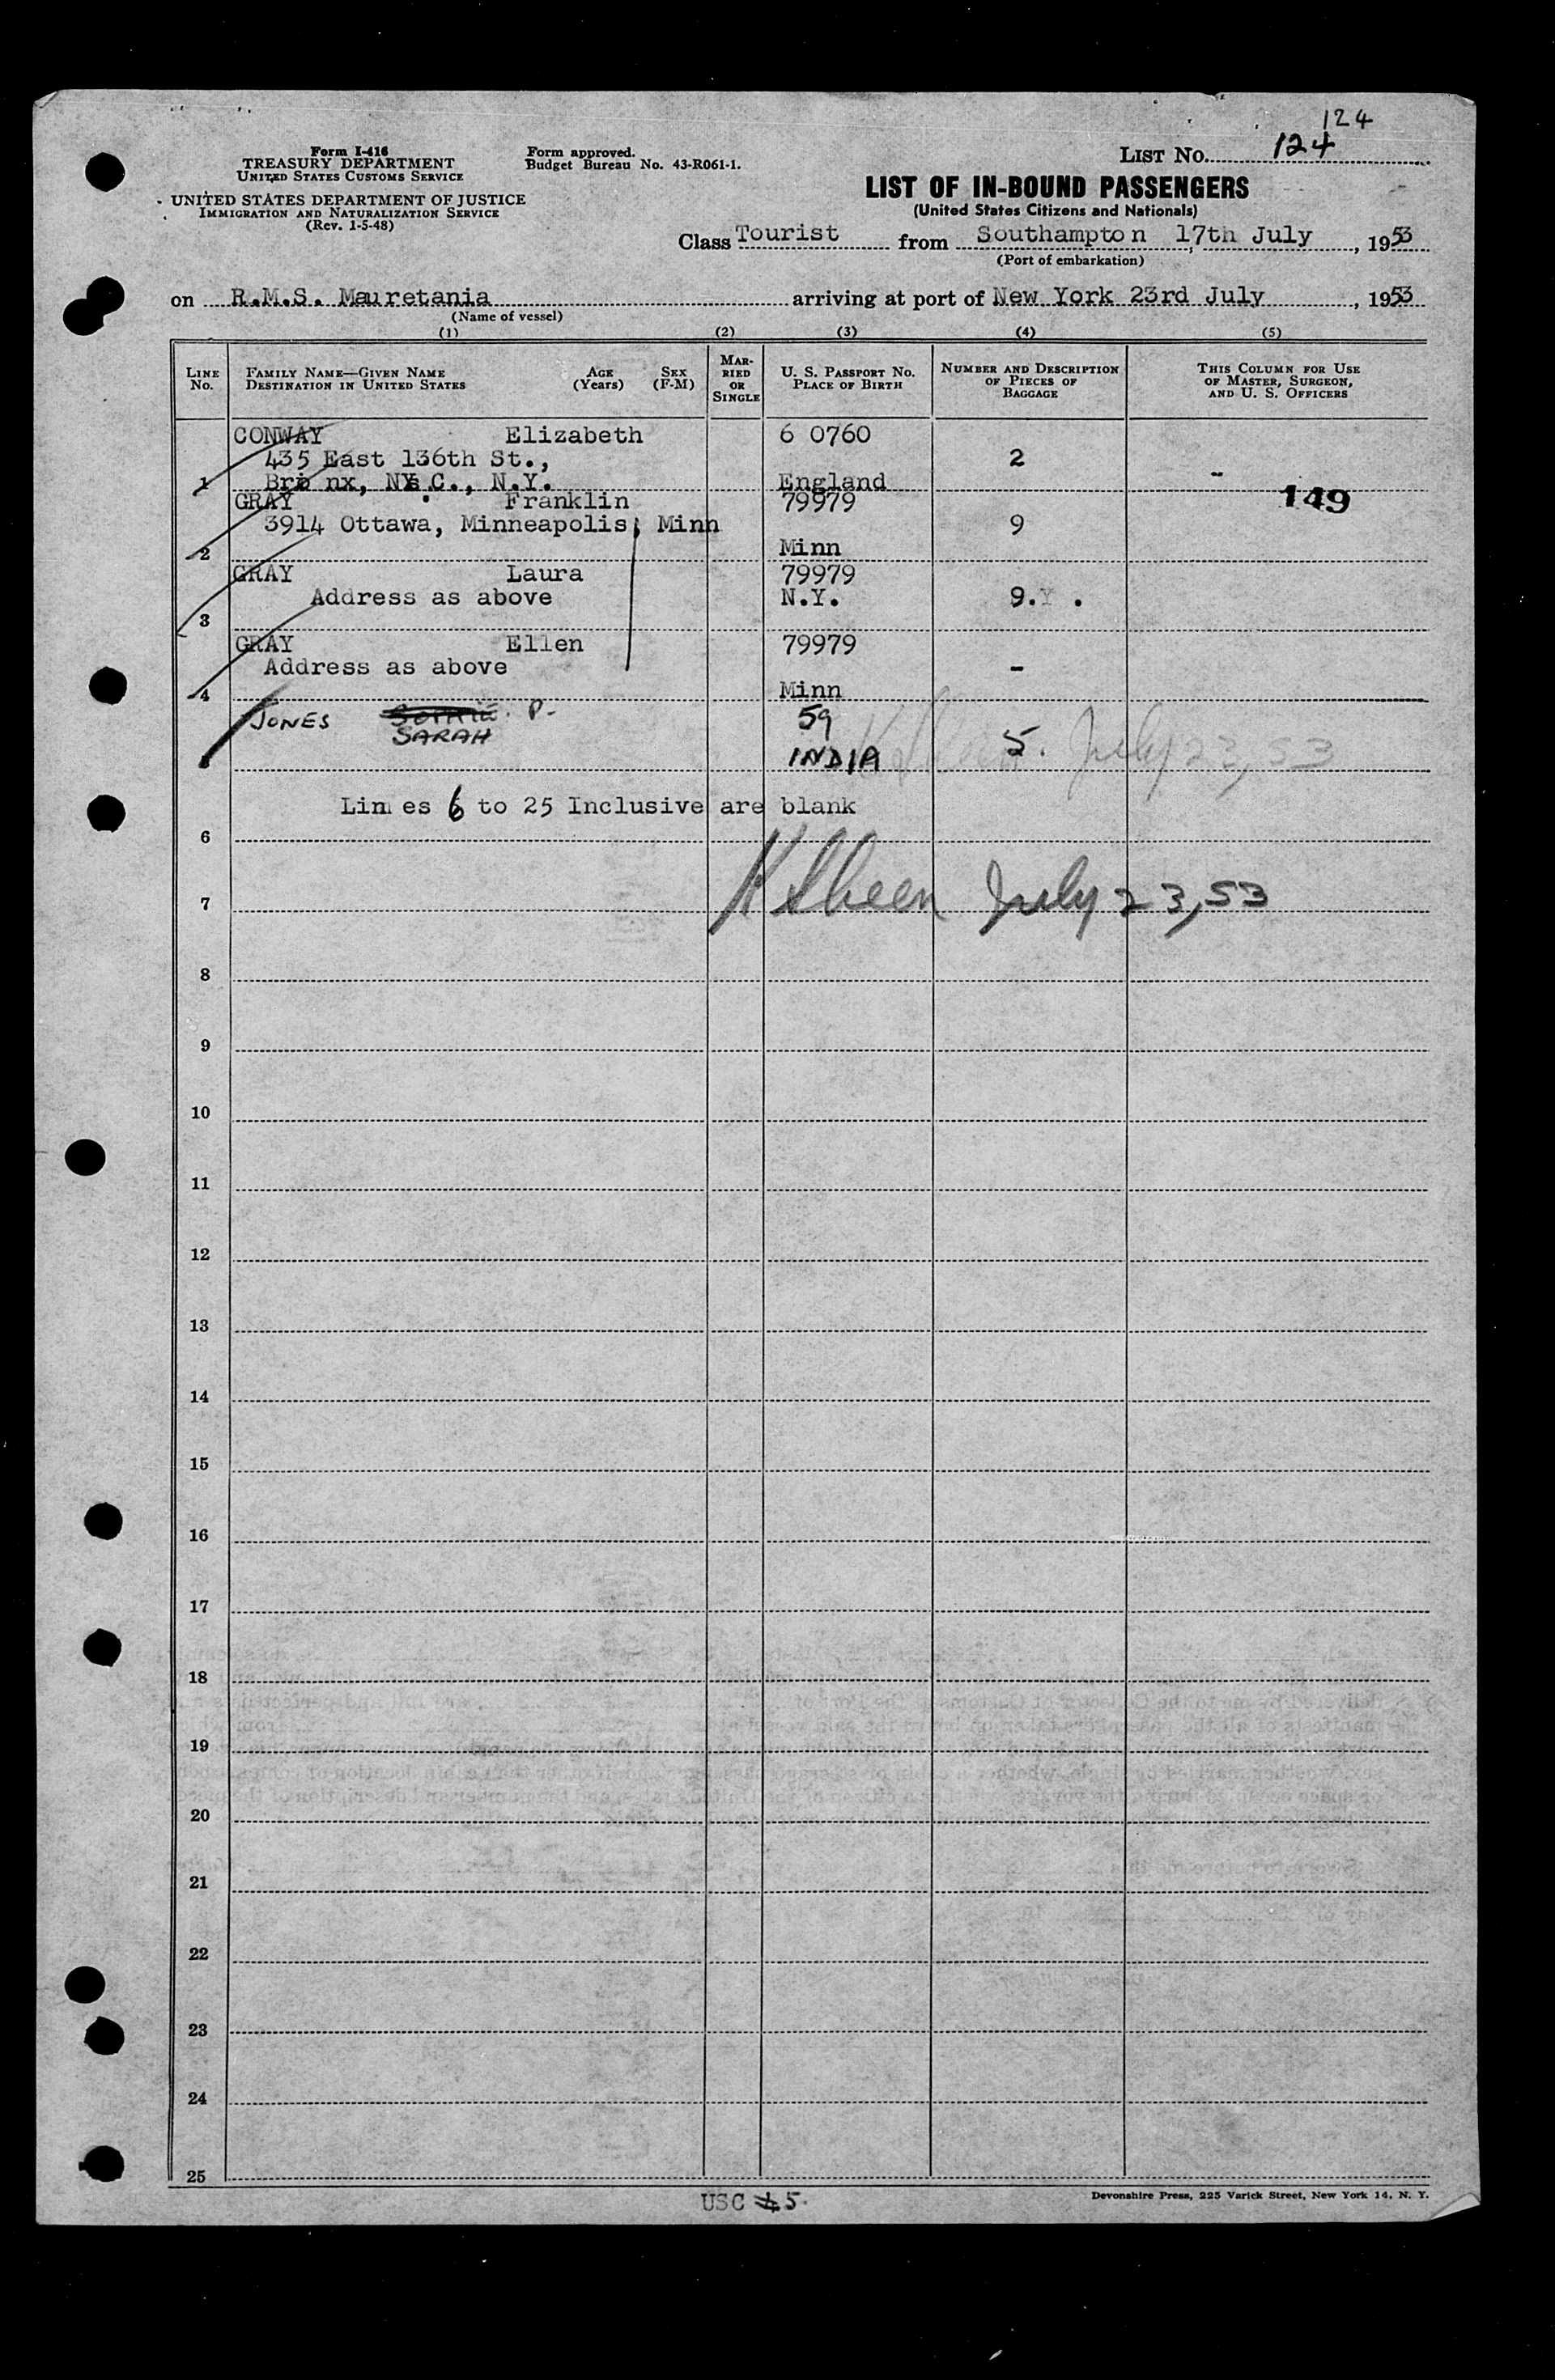 124
Form I-416
TREASURY DEPARTMENT
UNITED STATES CUSTOMS SERVICE
UNITED STATES DEPARTMENT OF JUSTICE
IMMIGRATION AND NATURALIZATION SERVICE
(Rev. 1-5-48)
Form approved.
Budget Bureau No. 43-R061-1.
LIST NO. 124
LIST OF IN-BOUND PASSENGERS
(United States Citizens and Nationals)
Class Tourist from Southampton 17th July, 1953
(Port of embarkation)
on R.M.S. Mauretania arriving at port of New York 23rd July, 1953
(Name of vessel)
(1) (2) (3) (4) (5)
LINE NO.
FAMILY NAME—GIVEN NAME
DESTINATION IN UNITED STATES
AGE (Years)
SEX (F-M)
MARRIED OR SINGLE
U. S. PASSPORT NO.
PLACE OF BIRTH
NUMBER AND DESCRIPTION OF PIECES OF BAGGAGE
THIS COLUMN FOR USE OF MASTER, SURGEON, AND U. S. OFFICERS
CONWAY Elizabeth 6 0760
435 East 136th St., 2
1 Bronx, N.Y.C., N.Y. England -
GRAY Franklin 79979 149
3914 Ottawa, Minneapolis, Minn 9
2 Minn
GRAY Laura 79979
Address as above N.Y. 9.
3
GRAY Ellen 79979
Address as above -
4 Minn
JONES P. 59
SARAH INDIA 5.
July 23, 53
Lin es 6 to 25 Inclusive are blank
6
7 July 23, 53
8
9
10
11
12
13
14
15
16
17
18
19
20
21
22
23
24
25
USC 5
Devonshire Press, 225 Varick Street, New York 14, N. Y.